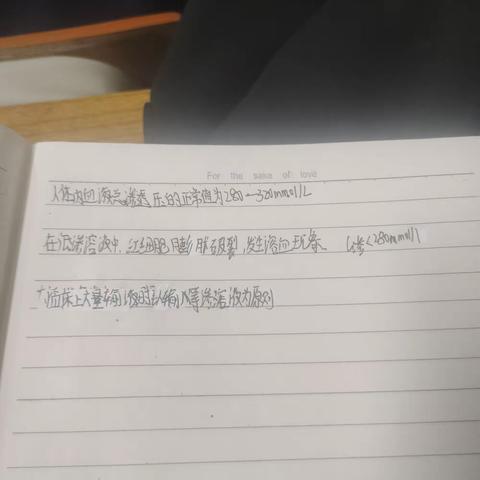 For the sake of love
人体内血液总渗透压的正常值为280-320mmol/L
在低渗溶液中,红细胞膨胀破裂,发生溶血现象 C渗<280mmol/l
临床上大量输液时以输入等渗溶液为原则